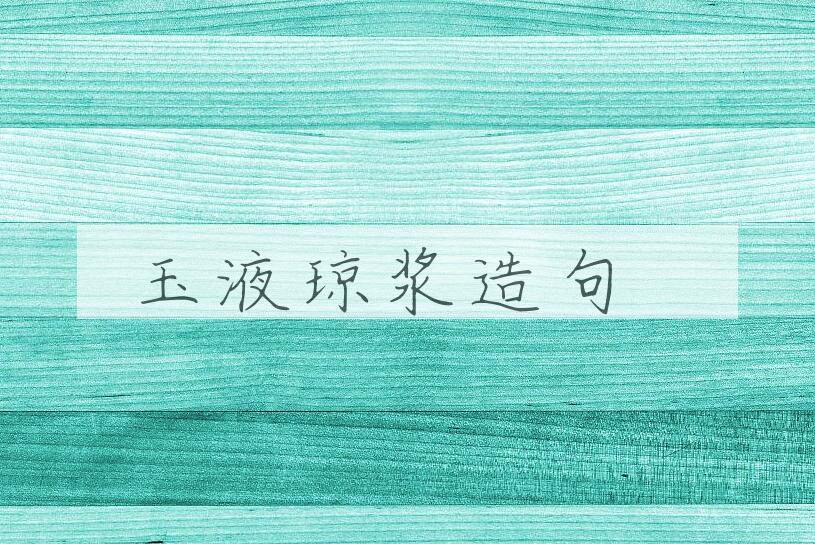 玉液琼浆造句